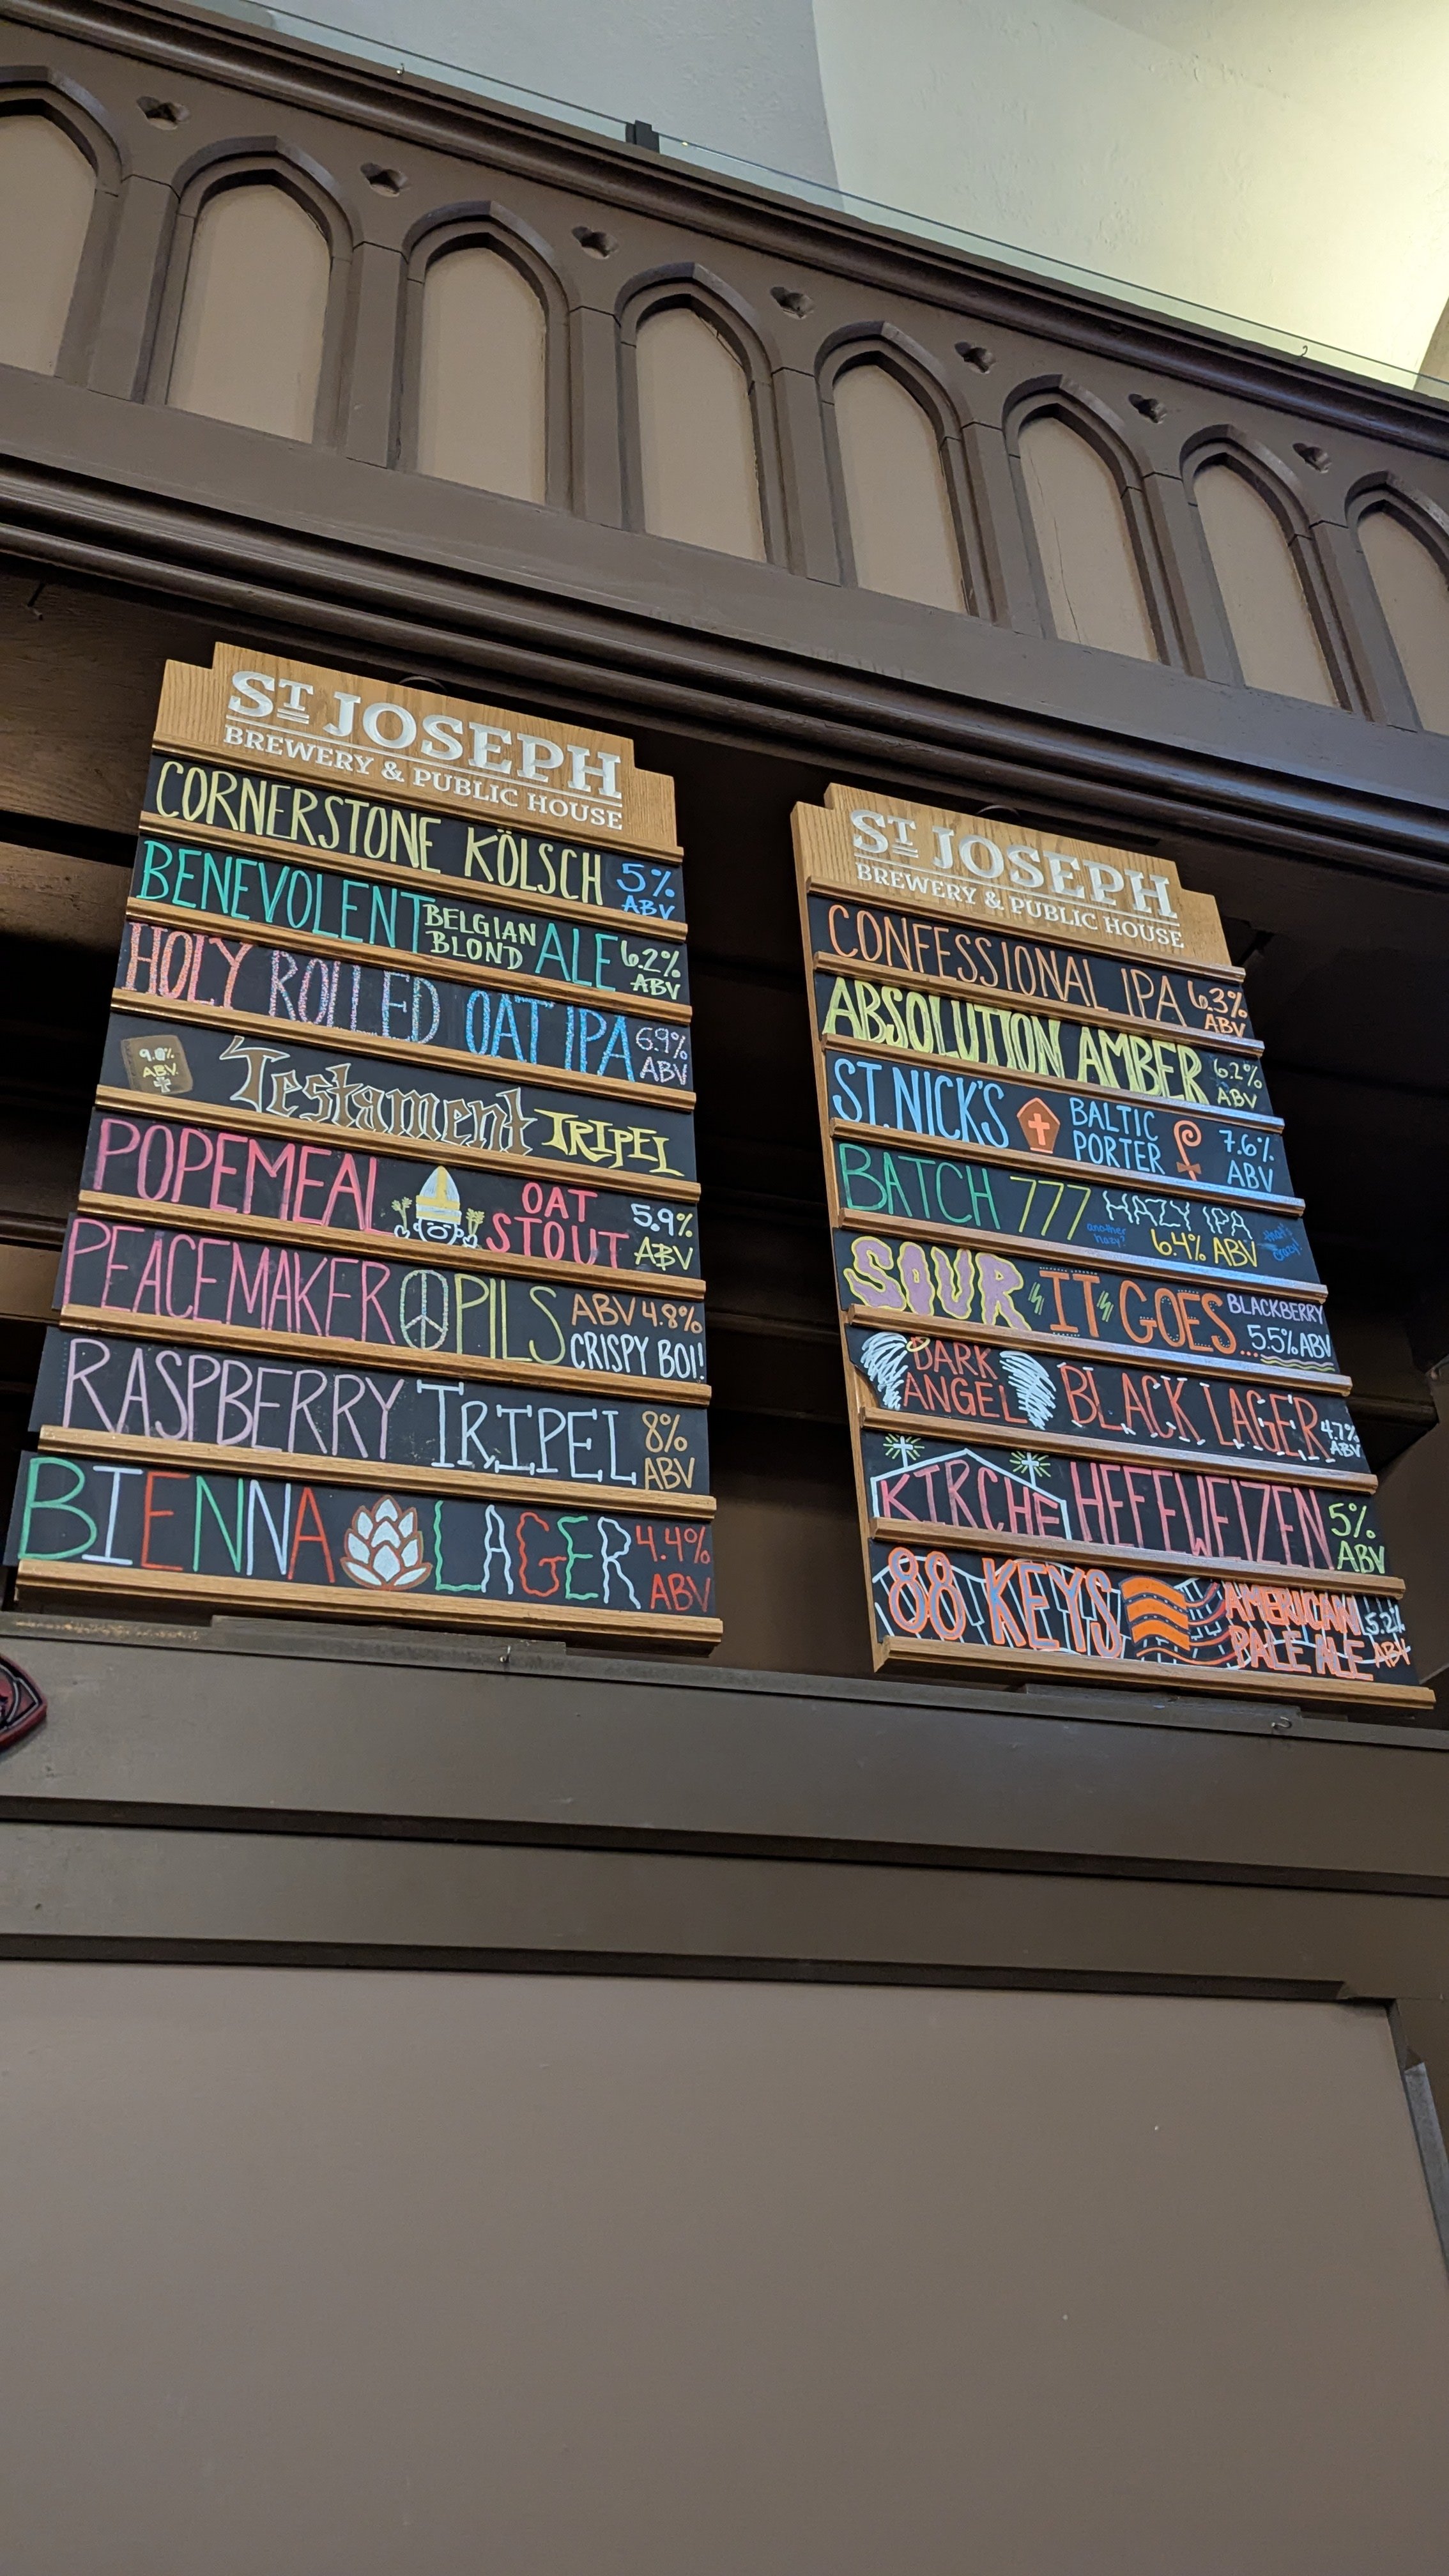 ST JOSEPH
BREWERY & PUBLIC HOUSE
CORNERSTONE KÖLSCH 5% ABV
BENEVOLENT BELGIAN BLOND ALE 6.2% ABV
HOLY ROLLED OAT IPA 6.9% ABV
9.8% ABV Testament TRIPEL
POPEMEAL OAT STOUT 5.9% ABV
PEACEMAKER PILS ABV 4.8% CRISPY BOI!
RASPBERRY TRIPEL 8% ABV
BIENNA LAGER 4.4% ABV
ST JOSEPH
BREWERY & PUBLIC HOUSE
CONFESSIONAL IPA 6.3% ABV
ABSOLUTION AMBER 6.2% ABV
ST. NICK'S BALTIC PORTER 7.6% ABV
BATCH 777 another hazy? HAZY IPA 6.4% ABV that's crazy!
SOUR IT GOES.... BLACKBERRY 5.5% ABV
DARK ANGEL BLACK LAGER 4.7% ABV
KIRCHE HEFEWEIZEN 5% ABV
88 KEYS AMERICAN PALE ALE 5.2% ABV